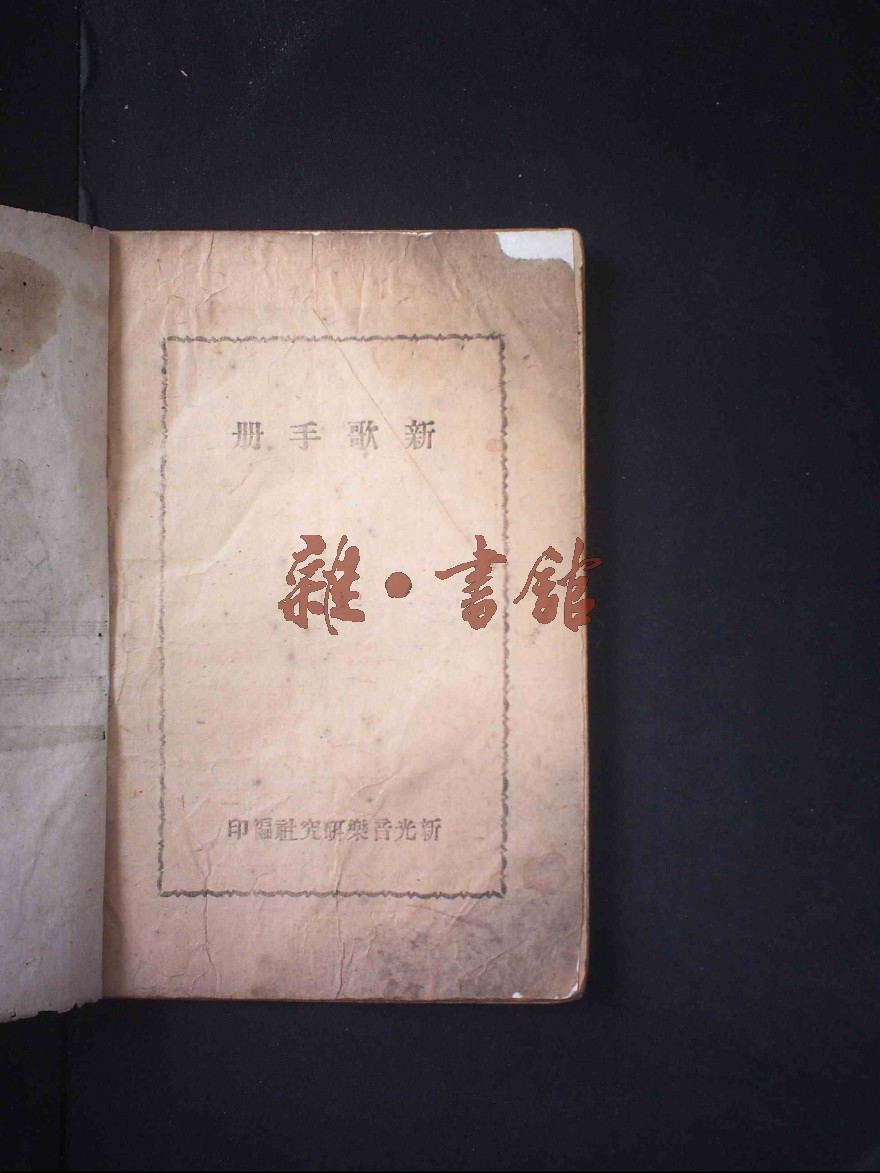 新歌手册
雜·書館
新光音樂研究社編印